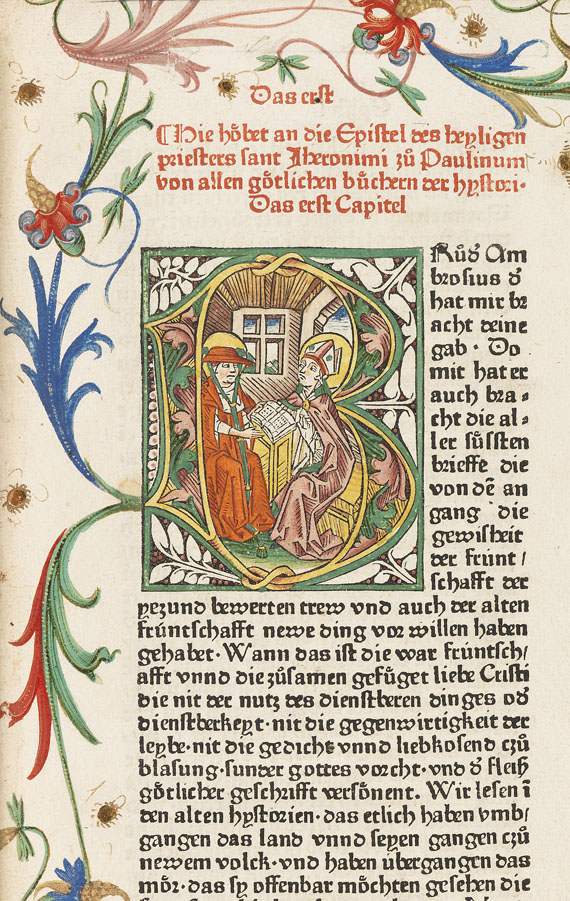 Das erst
Hie hőbet an die Epistel des heyligen
priesters sant Jheronimi zů Paulinum
von allen gőtlichen bůchern der hystori·
Das erst Capitel
Růd Am
brosius d
hat mir br
acht deine
gab · Do
mit hat er
auch bra⸗
cht die al⸗
ler sůssten
brieffe die
von dē an
gang die
gewisheit
der frünt /
schafft der
yezund bewerten trew vnd auch der alten
früntschafft newe ding vor willen haben
gehabet · Wann das ist die war früntsch/
afft vnnd die zůsamen gefůget liebe Cristi
die nit der nutz des dienstberen dinges od
dienstberkeyt · nit die gegenwirtigkeit der
leybe · nit die gedicht vnnd liebkosend czů
blasung · sunder gottes vorcht · vnd d fleiß
gőtlicher geschrifft versőnent. Wir lesen ī
den alten hystorien · das etlich haben vmb/
gangen das land vnnd seyen gangen czů
newem volck · vnd haben übergangen das
mőr · das sy offenbar mőchten gesehen die